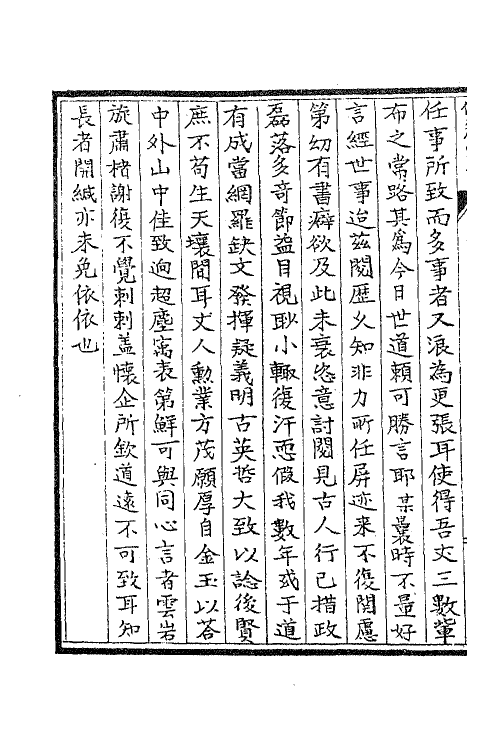 任事所致而多事者又浪為更張耳使得吾丈三數輩
布之常路其爲今日世道賴可勝言耶某曩時不量好
言經世事迨茲閱歷乆知非力所任屏迹来不復関慮
第幼有書癖欲及此未衰恣意討閱見古人行己措政
磊落多奇節益目視眇小輙復汗恧假我數年或于道
有成當網羅缺文發揮疑義明古英哲大致以諗後賢
庶不苟生天壤間耳丈人勳業方茂願厚自金玉以荅
中外山中佳致逈超塵寓表第鮮可與同心言者雲岩
旋肅楮謝復不覺刺刺盖懷企所欽道遠不可致耳知
長者開緘亦未免依依也